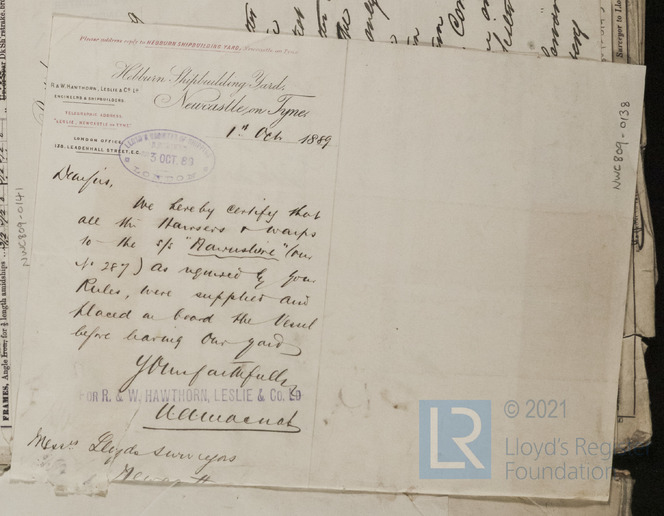 Please address reply to HEBBURN SHIPBUILDING YARD, Newcastle on Tyne
Hebburn Shipbuilding Yard,
R & W. HAWTHORN, LESLIE & Co. LD
ENGINEERS & SHIPBUILDERS.
Newcastle on Tyne
TELEGRAPHIC ADDRESS,
"LESLIE, NEWCASTLE ON TYNE"
LONDON OFFICE
128, LEADENHALL STREET, E.C.
1st Oct 1889
3 OCT. 89
LONDON
Dear Sirs,
We hereby certify that
all the Hawsers & warps
to the s/s "
(our
No 287) as required by your
Rules, were supplied and
placed on board the Vessel
before leaving our yard
Yours faithfully
FOR R. & W. HAWTHORN, LESLIE & Co. LD
Messrs Lloyds Surveyors
NWC809-0138
NWC809-0141
FRAMES, Angle Iron, for ¾ length amidships
Surveyor to Llo
LR
© 2021
Lloyd's Register
Foundation